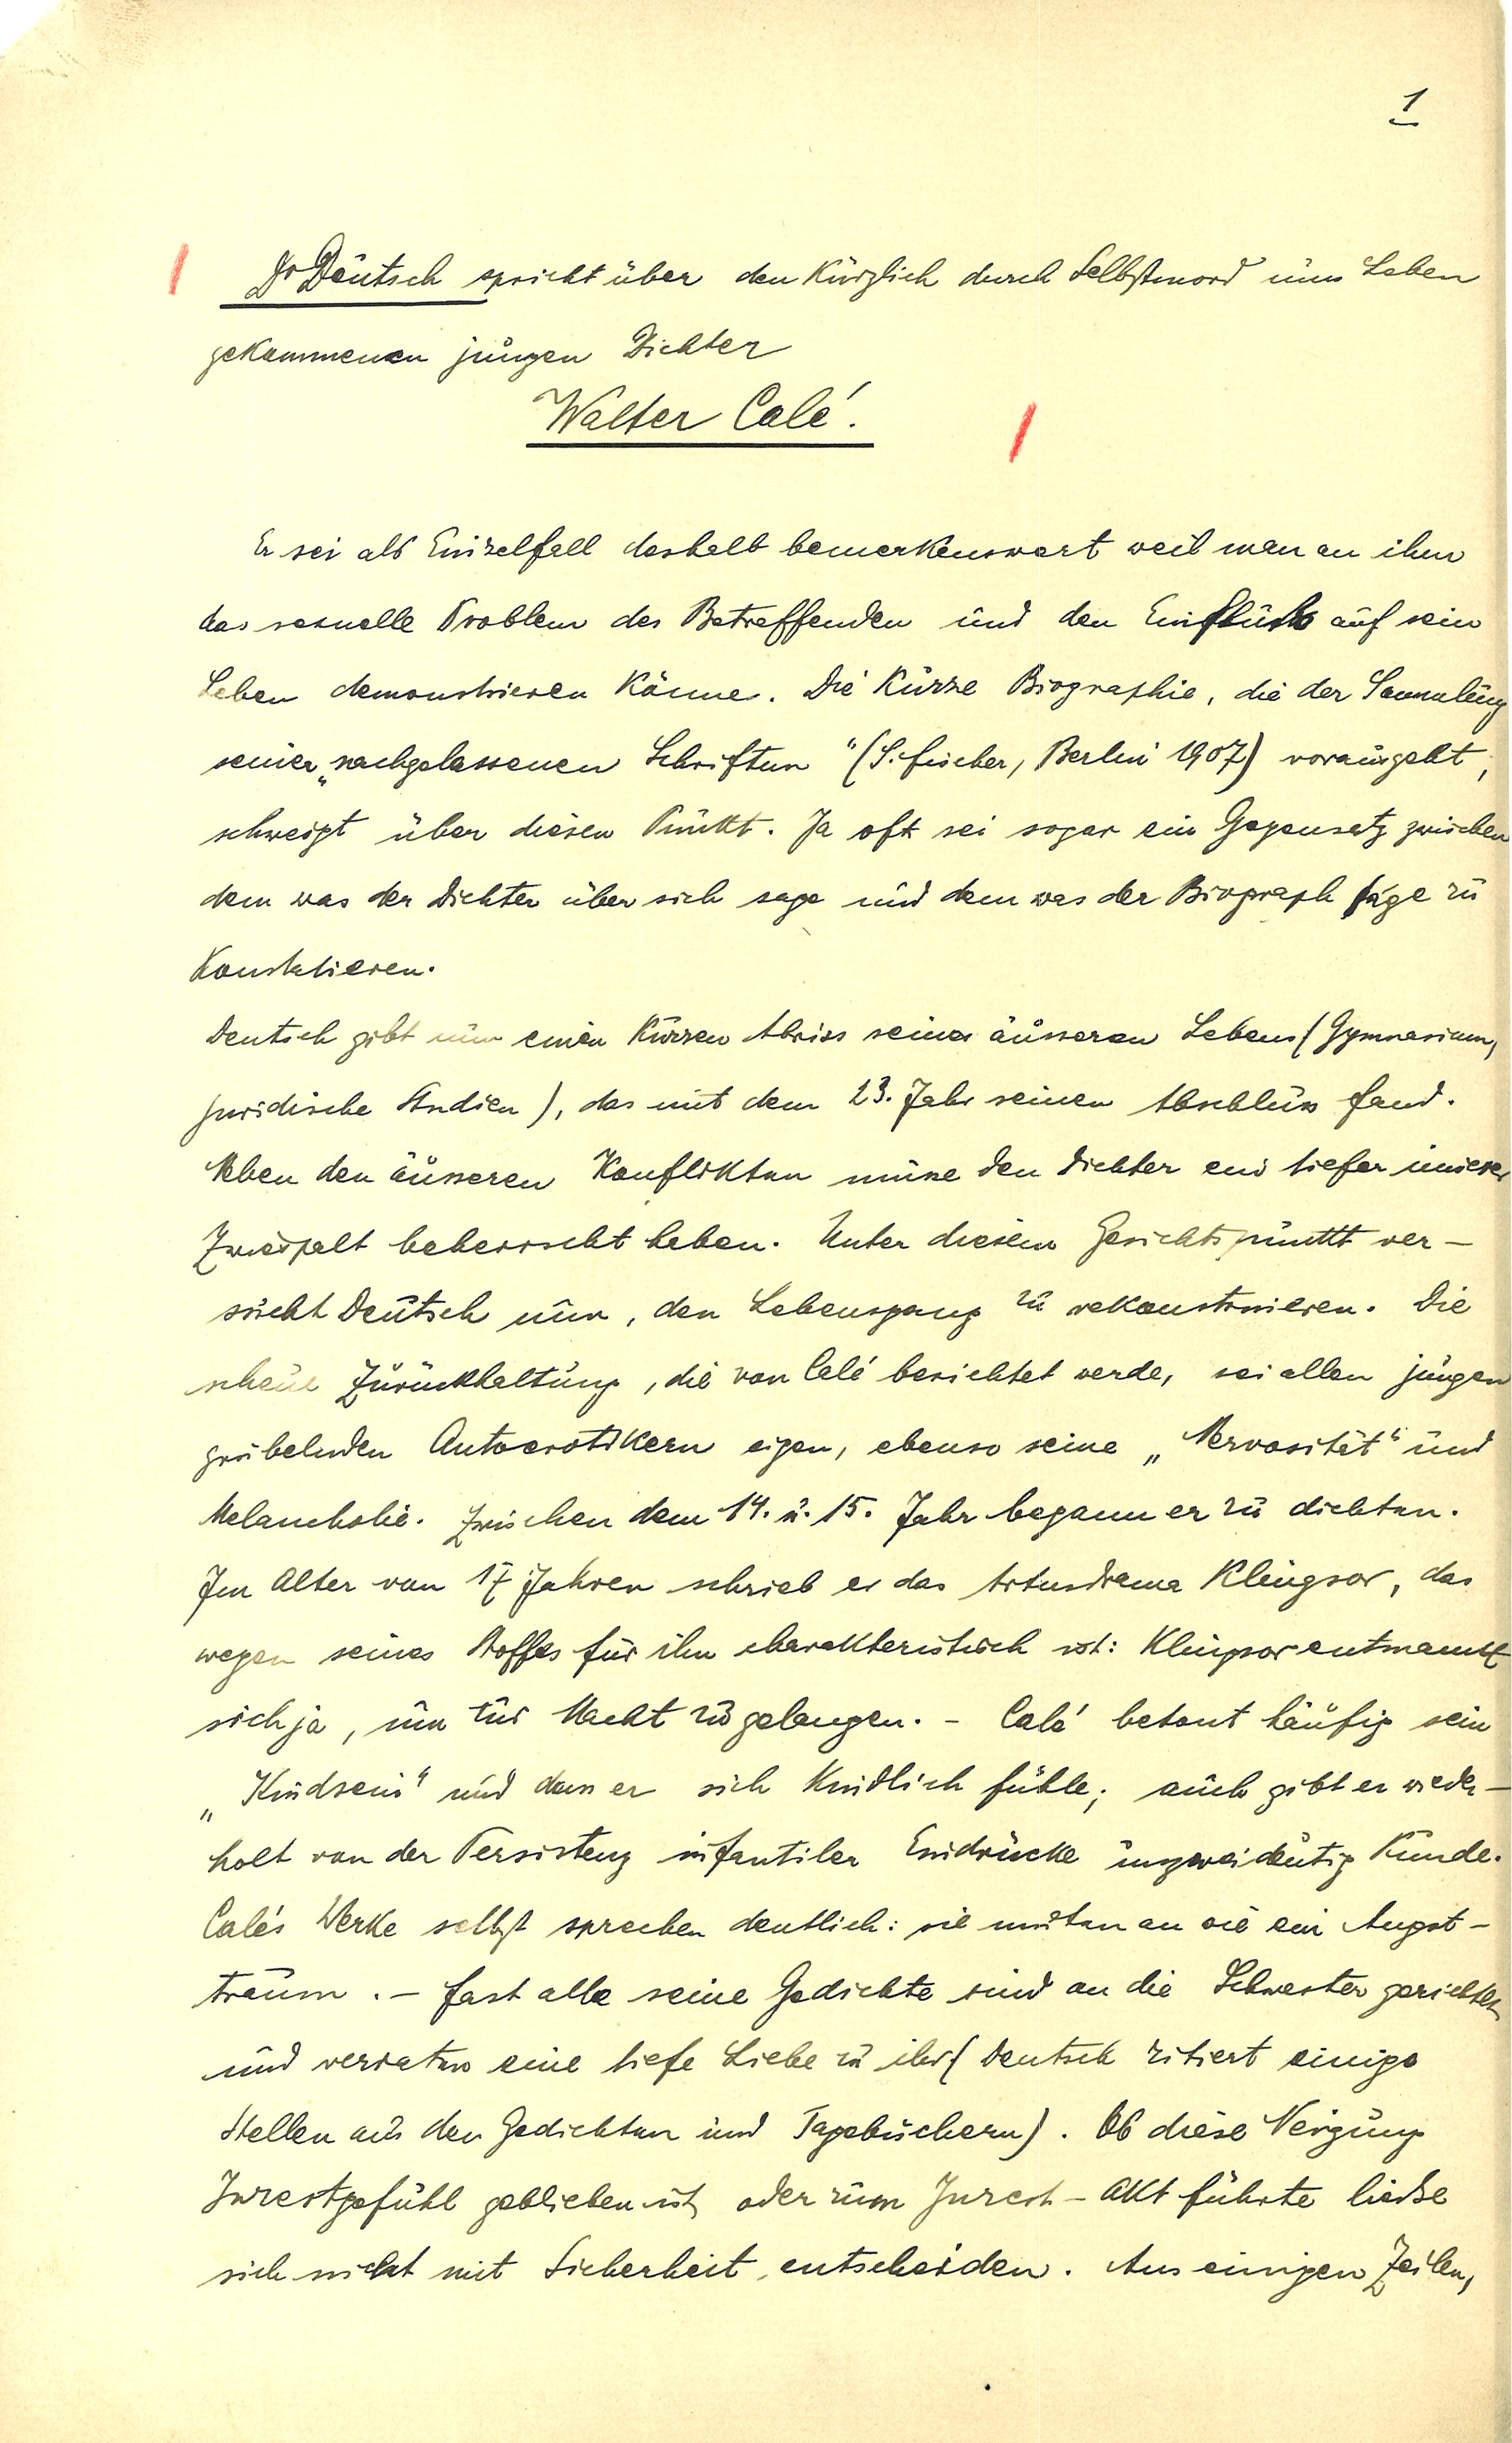 1
Dr Deutsch spricht über den kürzlich durch Selbstmord ums Leben
gekommenen jungen Dichter
Walter Calé.
Er sei als Einzelfall deshalb bemerkenswert weil man an ihm
das sexuelle Problem des Betreffenden und den Einfluss auf sein
Leben demonstrieren könne. Die kurze Biographie, die der Sammlung
seiner „nachgelassenen Schriften" (S. Fischer, Berlin 1907) vorausgeht,
schweigt über diesen Punkt. Ja oft sei sogar ein Gegensatz zwischen
dem was der Dichter über sich sage und dem was der Biograph sage zu
konstatieren.
Deutsch gibt nun einen kurzen Abriss seines äusseren Lebens (Gymnasium,
juridische Studien), das mit dem 23. Jahr seinen Abschluss fand.
Neben den äusseren Konflikten müsse den Dichter ein tiefer innerer
Zwiespalt beherrscht haben. Unter diesem Gesichtspunkt ver-
sucht Deutsch nun, den Lebensgang zu rekonstruieren. Die
scheue Zurückhaltung, die von Calé berichtet werde, sei allen jungen
grübelnden Autoerotikern eigen, ebenso seine „Nervosität" und
Melancholie. Zwischen dem 14. u. 15. Jahr begann er zu dichten.
Im Alter von 17 Jahren schrieb er das Artusdrama Klingsor, das
wegen seines Stoffes für ihn charakteristisch ist: Klingsor entmannt
sich ja, um zur Macht zu gelangen. - Calé betont häufig sein
„Kindsein" und dass er sich kindlich fühle; auch gibt er wieder-
holt von der Persistenz infantiler Eindrücke unzweideutig Kunde.
Calés Werke selbst sprechen deutlich: sie muten an wie ein Angst-
traum. - Fast alle seine Gedichte sind an die Schwester gerichtet
und verraten eine tiefe Liebe zu ihr (Deutsch zitiert einige
Stellen aus den Gedichten und Tagebüchern). Ob diese Neigung
Inzestgefühl geblieben ist, oder zum Inzest-Akt führte liesse
sich nicht mit Sicherheit entscheiden. Aus einigen Zeilen,